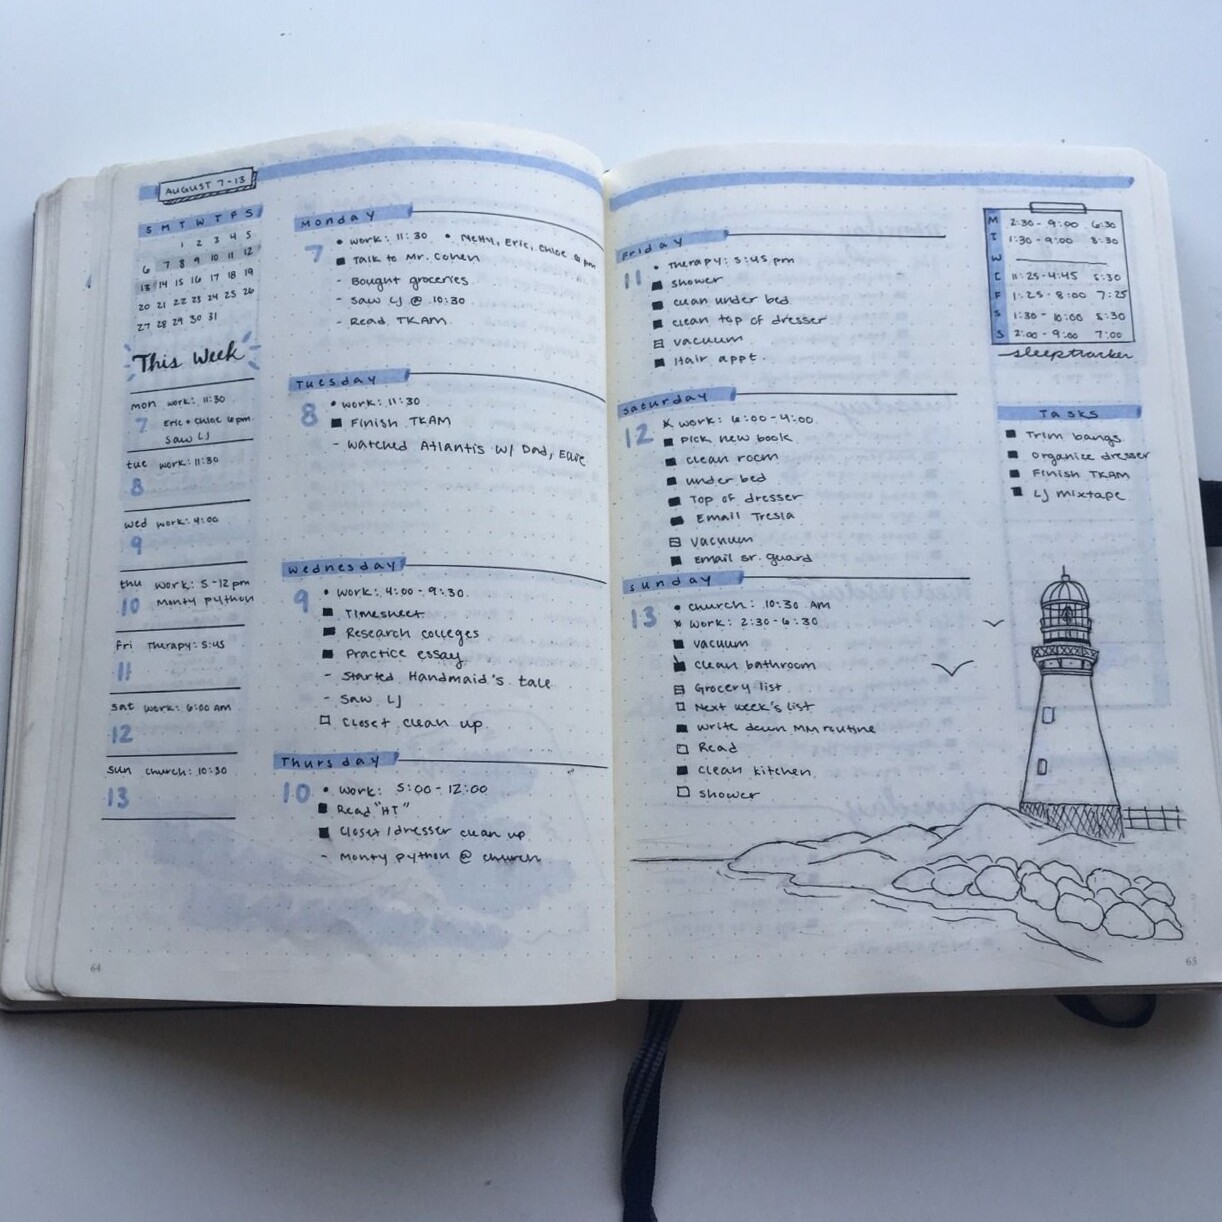 AUGUST 7-13
S M T W T F S
1 2 3 4 5
6 7 8 9 10 11 12
13 14 15 16 17 18 19
20 21 22 23 24 25 26
27 28 29 30 31
This Week
mon work: 11:30
7 Eric + Chloe 6pm
Saw LJ
tue work: 11:30
8
wed work: 4:00
9
thu work: 5-12pm
10 Monty python
Fri Therapy: 5:45
11
sat work: 6:00 AM
12
sun church: 10:30
13
Monday
7 • work: 11:30 • Eric, Chloe 6 pm
Talk to Mr. Cohen
- Bought groceries
- Saw LJ @ 10:30
- Read TKAM
Tuesday
8 • work: 11:30
Finish TKAM
- Watched Atlantis w/ Dad,
Wednesday
9 • work: 4:00 - 9:30
Timesheet
Research colleges
Practice essay
- Started Handmaid's tale
- Saw LJ
Closet clean up
Thursday
10 • work: 5:00 - 12:00
Read "HT"
Closet/dresser clean up
- Monty python @ church
64
Friday
11 • Therapy: 5:45 pm
shower
clean under bed
clean top of dresser
vacuum
Hair appt.
Saturday
12 x work: 6:00-4:00
pick new book
clean room
under bed
Top of dresser
Email Tresla
vacuum
Email sr. guard
Sunday
13 • church: 10:30 AM
x work: 2:30-6:30
vacuum
clean bathroom
Grocery list
Next week's list
write down MM routine
Read
clean kitchen
shower
M 2:30 - 9:00 6:30
T 1:30 - 9:00 8:30
W
11:25 - 4:45 5:30
F 1:25 - 8:00 7:25
S 1:30 - 10:00 8:30
S 2:00 - 9:00 7:00
sleeptracker
Tasks
Trim bangs
Organize dresser
Finish TKAM
LJ mixtape
65